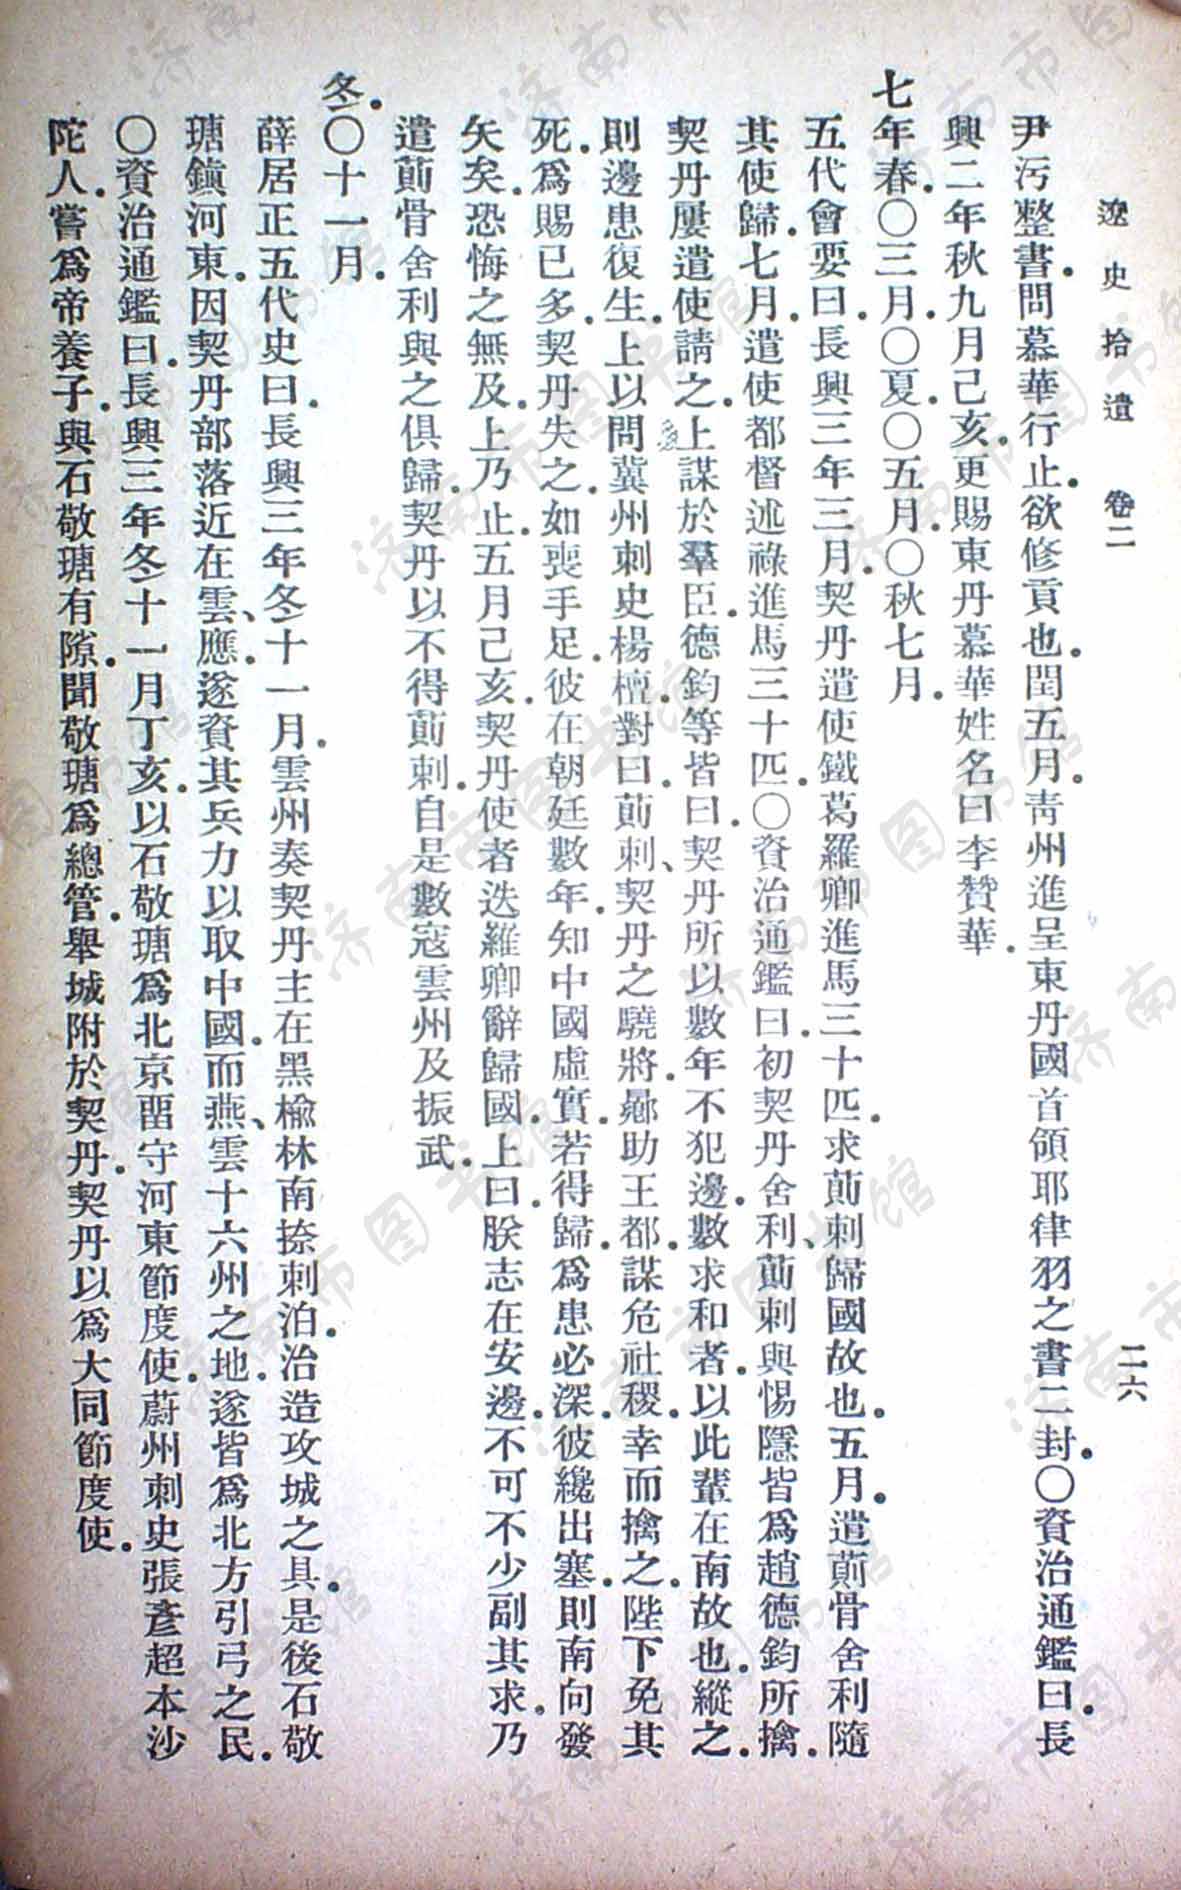 遼史拾遺 卷二 二六
尹污整書問慕華行止欲修貢也閏五月靑州進呈東丹國首領耶律羽之書二封〇資治通鑑曰長
興二年秋九月己亥更賜東丹慕華姓名曰李贊華
七年春〇三月〇夏〇五月〇秋七月
五代會要曰長興三年三月契丹遣使鐵葛羅卿進馬三十匹求萴剌歸國故也五月遣萴骨舍利隨
其使歸七月遣使都督述祿進馬三十匹〇資治通鑑曰初契丹舍利萴剌與惕隱皆爲趙德鈞所擒
契丹屢遣使請之上謀於羣臣德鈞等皆曰契丹所以數年不犯邊數求和者以此輩在南故也縱之
則邊患復生上以問冀州刺史楊檀對曰萴剌契丹之驍將曏助王都謀危社稷幸而擒之陛下免其
死爲賜已多契丹失之如喪手足彼在朝廷數年知中國虛實若得歸爲患必深彼纔出塞則南向發
矢矣恐悔之無及上乃止五月己亥契丹使者迭羅卿辭歸國上曰朕志在安邊不可不少副其求乃
遣萴骨舍利與之俱歸契丹以不得萴剌自是數寇雲州及振武
冬〇十一月
薛居正五代史曰長興三年冬十一月雲州奏契丹主在黑榆林南捺剌泊治造攻城之具是後石敬
瑭鎭河東因契丹部落近在雲應遂資其兵力以取中國而燕雲十六州之地遂皆爲北方引弓之民
〇資治通鑑曰長興三年冬十一月丁亥以石敬瑭爲北京留守河東節度使蔚州刺史張彥超本沙
陀人嘗爲帝養子與石敬瑭有隙聞敬瑭爲總管舉城附於契丹契丹以爲大同節度使
济南市图书馆